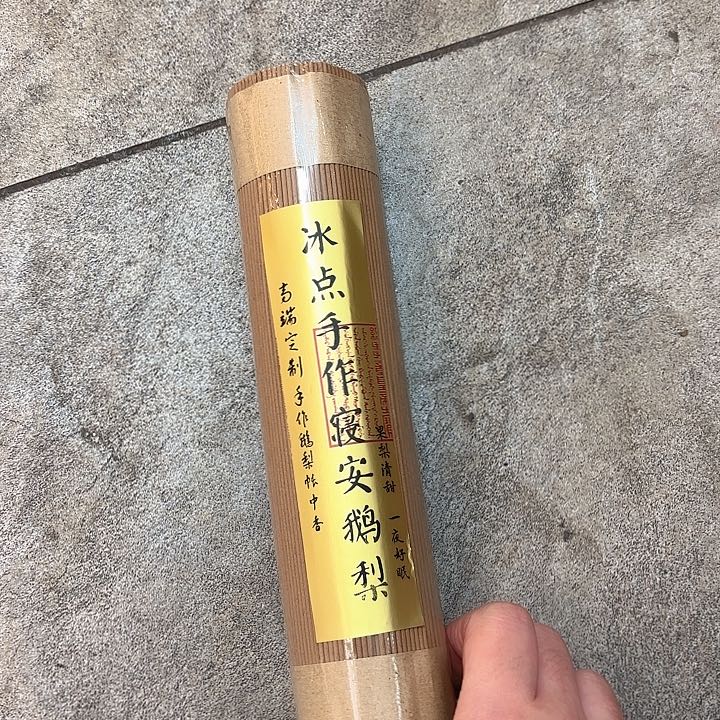 冰点手作寝安鹅梨
高端定制 手作鹅梨帐中香
果梨清甜 一夜好眠